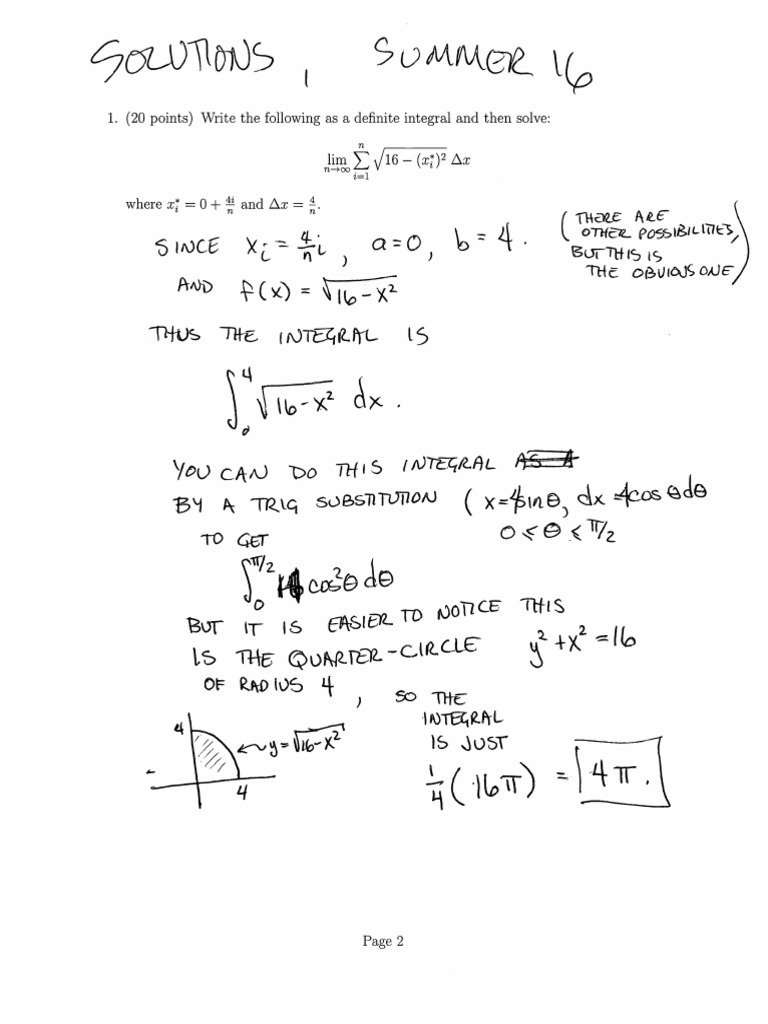 SOLUTIONS, SUMMER 16
1. (20 points) Write the following as a definite integral and then solve:
lim_{n→∞} ∑_{i=1}^{n} √(16 − (x_i^*)²) Δx
where x_i^* = 0 + 4i/n and Δx = 4/n.
SINCE x_i = 4/n i, a=0, b=4.
(THERE ARE
OTHER POSSIBILITIES,
BUT THIS IS
THE OBVIOUS ONE)
AND f(x) = √(16-x²)
THUS THE INTEGRAL IS
∫_0^4 √(16-x²) dx.
YOU CAN DO THIS INTEGRAL
BY A TRIG SUBSTITUTION (x=4sinθ, dx=4cosθdθ
0≤θ≤π/2
TO GET
∫_0^{π/2} 16cos²θdθ
BUT IT IS EASIER TO NOTICE THIS
IS THE QUARTER-CIRCLE y²+x²=16
OF RADIUS 4, SO THE
INTEGRAL
IS JUST
1/4(16π) = 4π.
4
y=√(16-x²)
4
Page 2